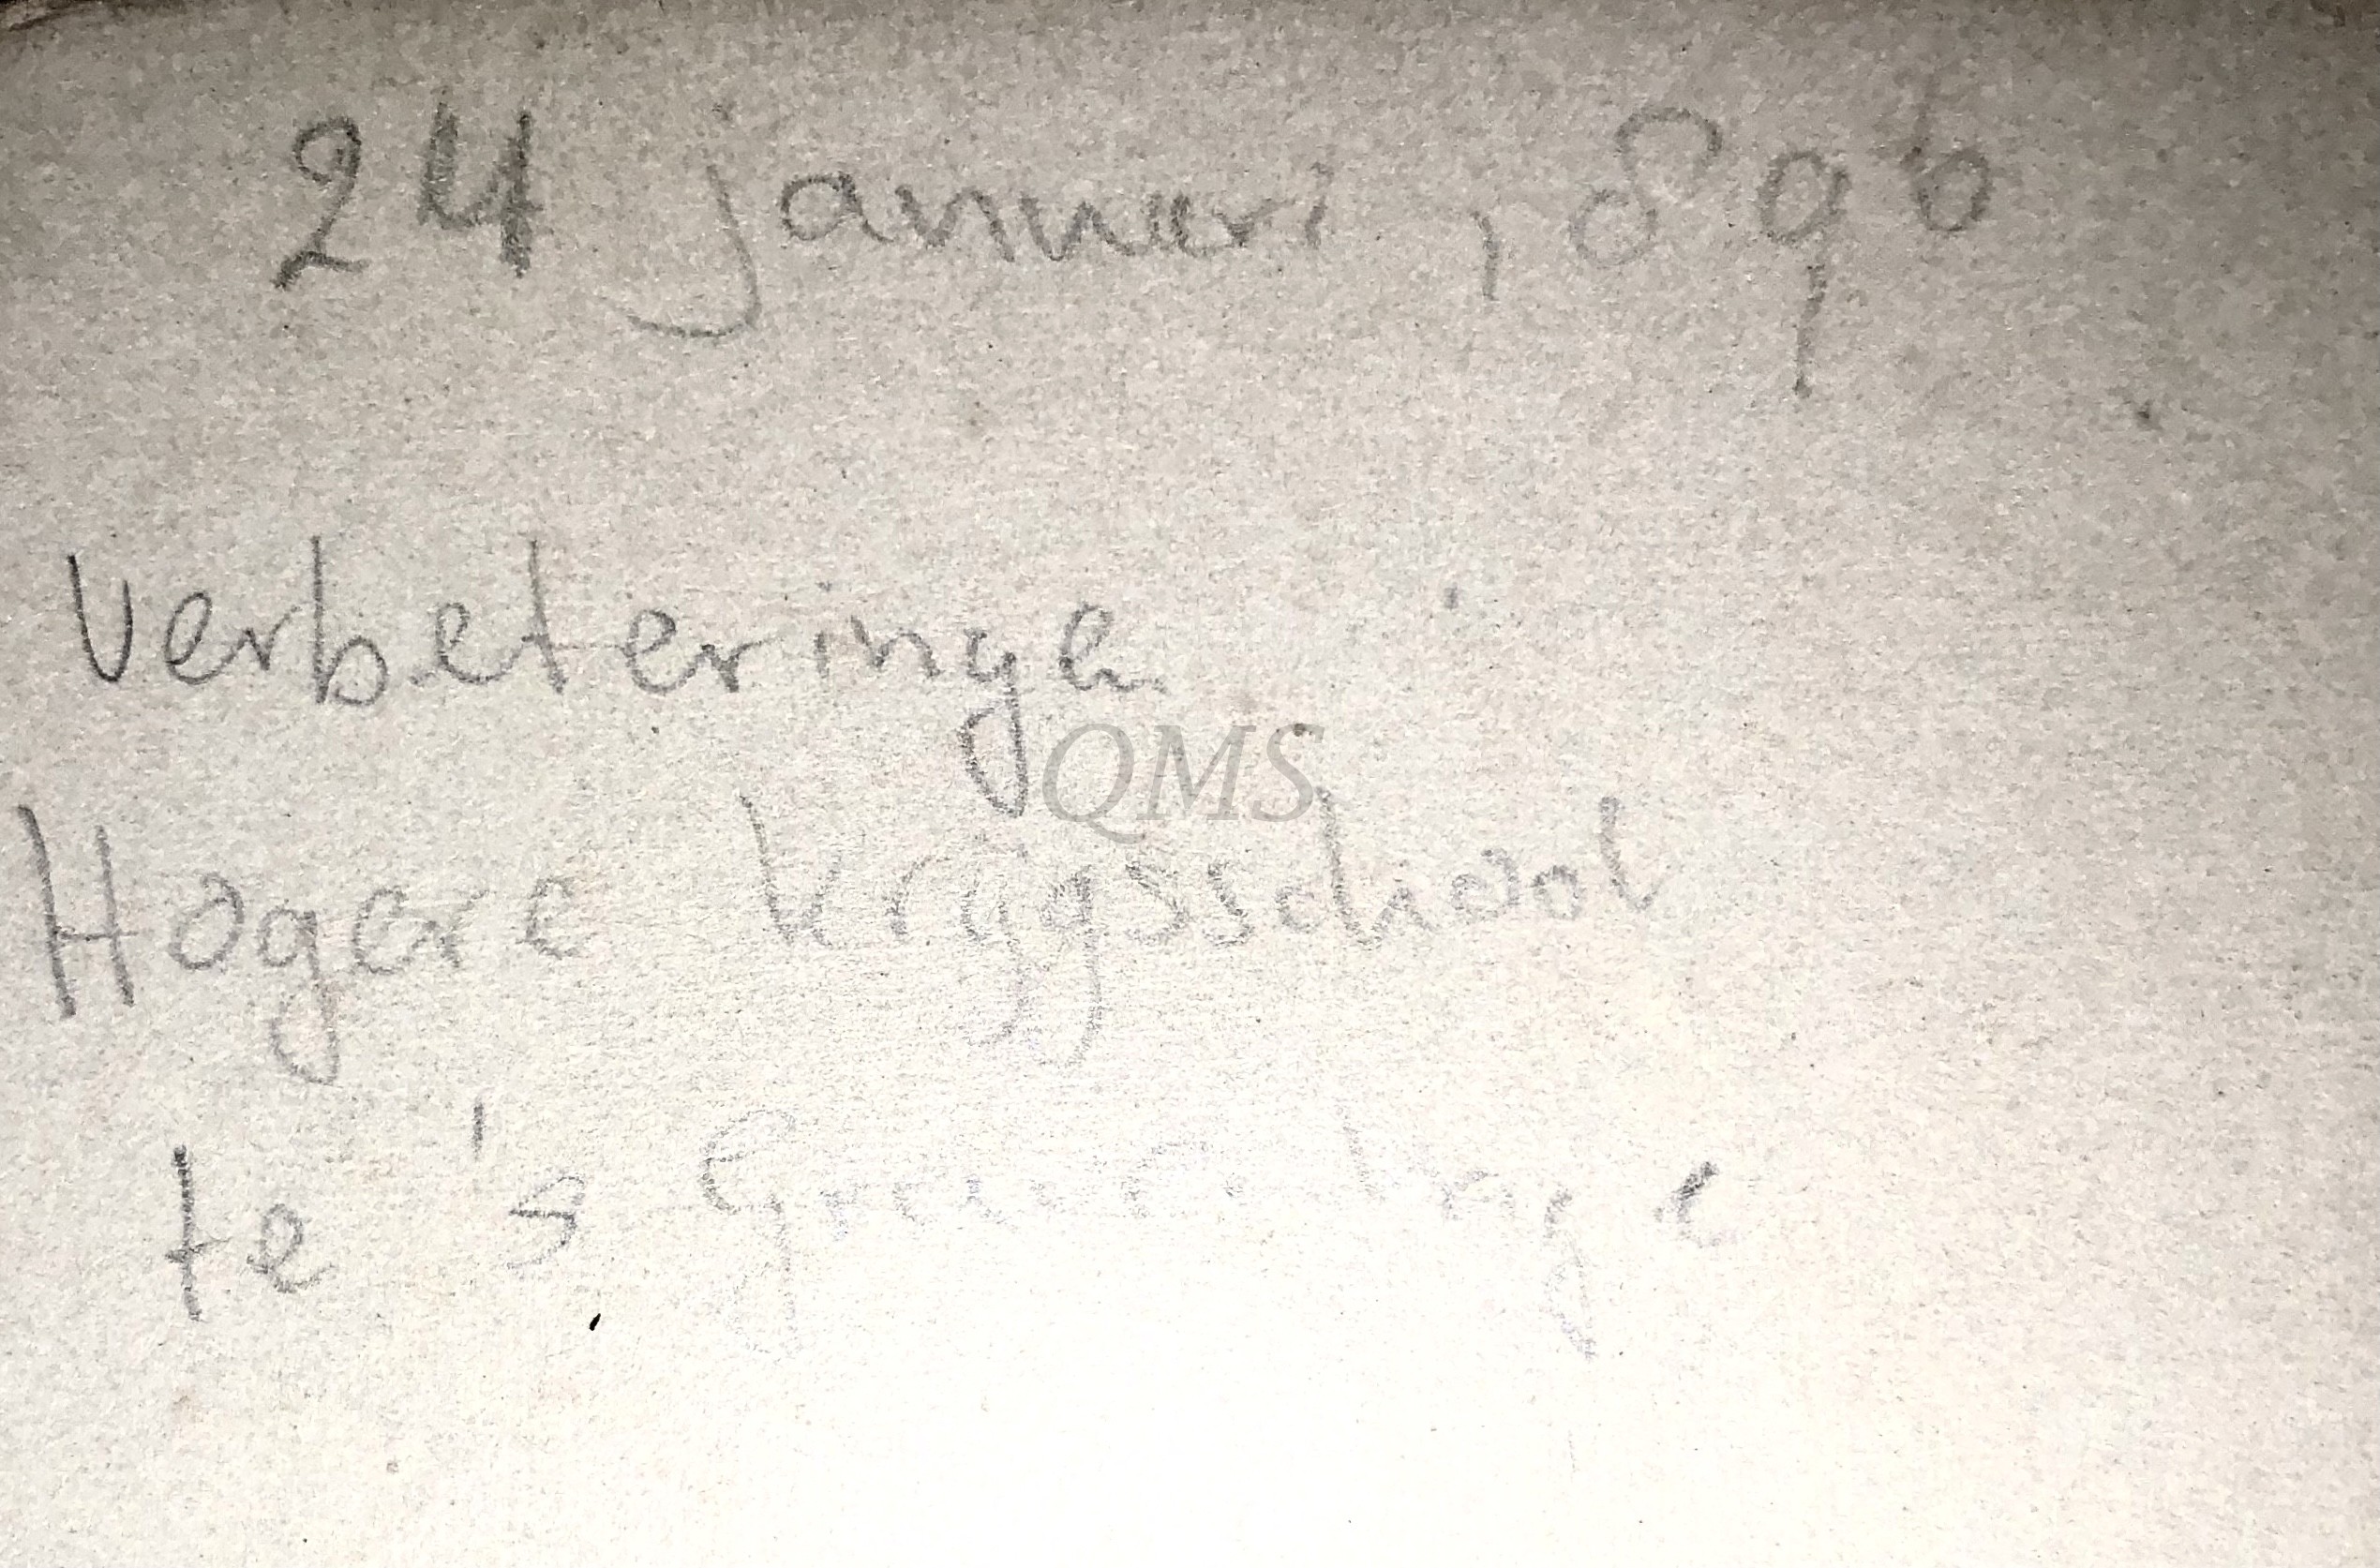 24 januari 1896
verbeteringen
QMS
Hogere Krijgsschool
te 's Gravenhage